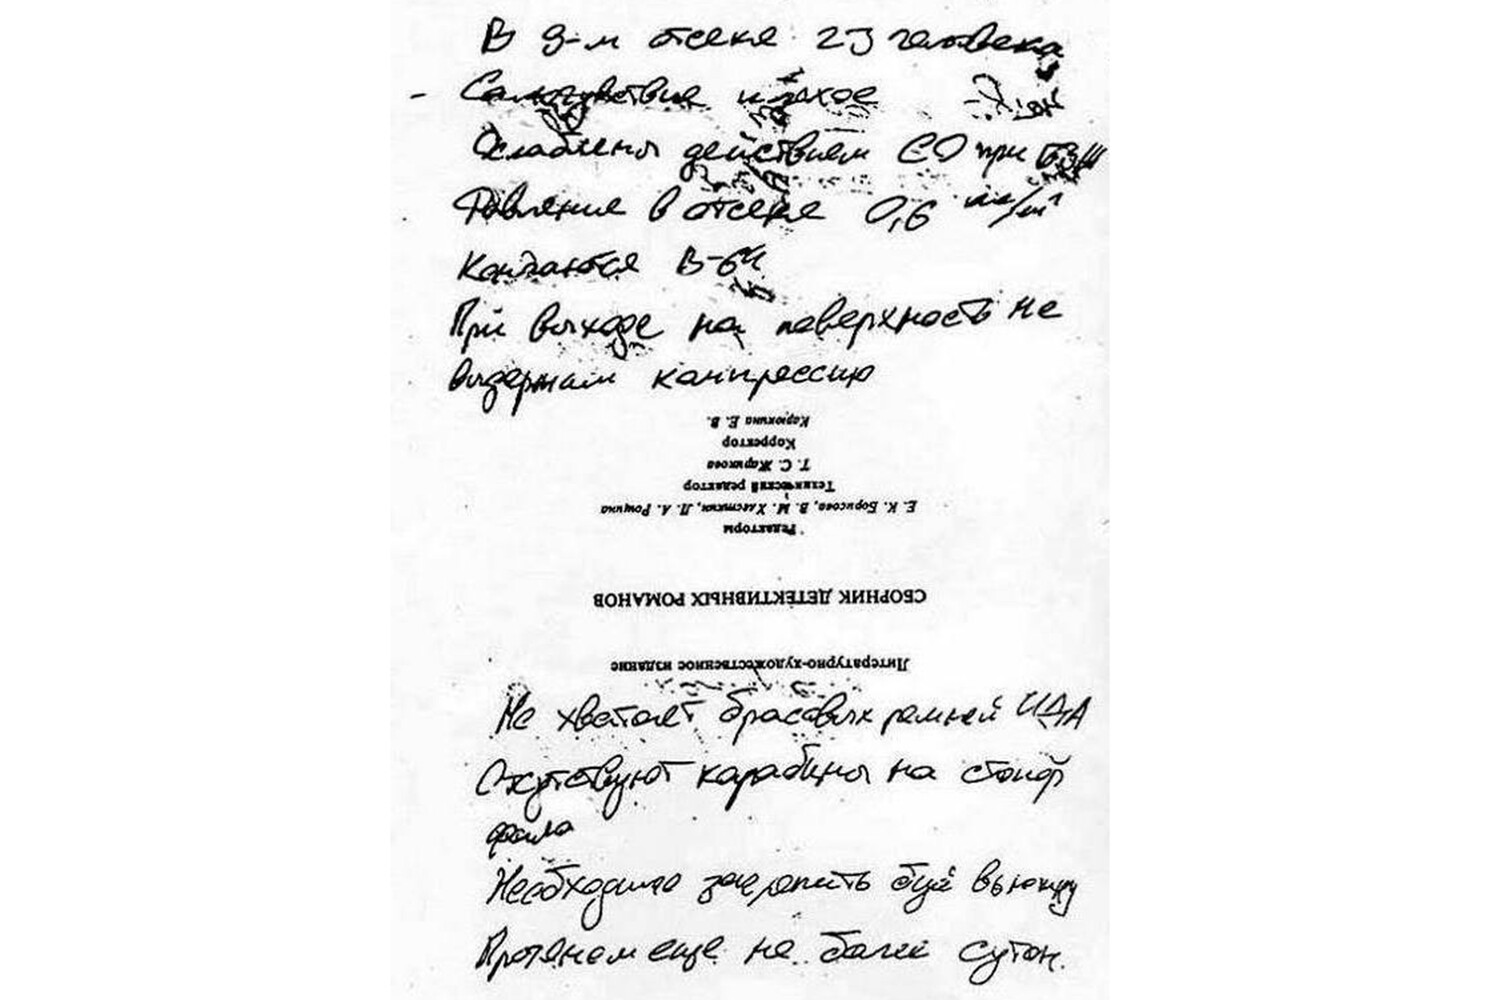 В 9-м отсеке 23 человека
- Самочувствие плохое
Ослаблены действием СО при БЗЖ
Давление в отсеке 0,6 кг/см²
Кончаются В-64
При выходе на поверхность не
выдержим компрессию
Карюкина Е. В.
Корректор
Т. С. Жарикова
Технический редактор
Е. К. Борисова, В. М. Хлесткин, Л. А. Рощина
Редакторы
СБОРНИК ДЕТЕКТИВНЫХ РОМАНОВ
Литературно-художественное издание
Не хватает брасовых ремней ИДА
Отсутствуют карабины на стопор
фала
Необходимо закрепить буй вьюшку
Протянем еще не более суток.